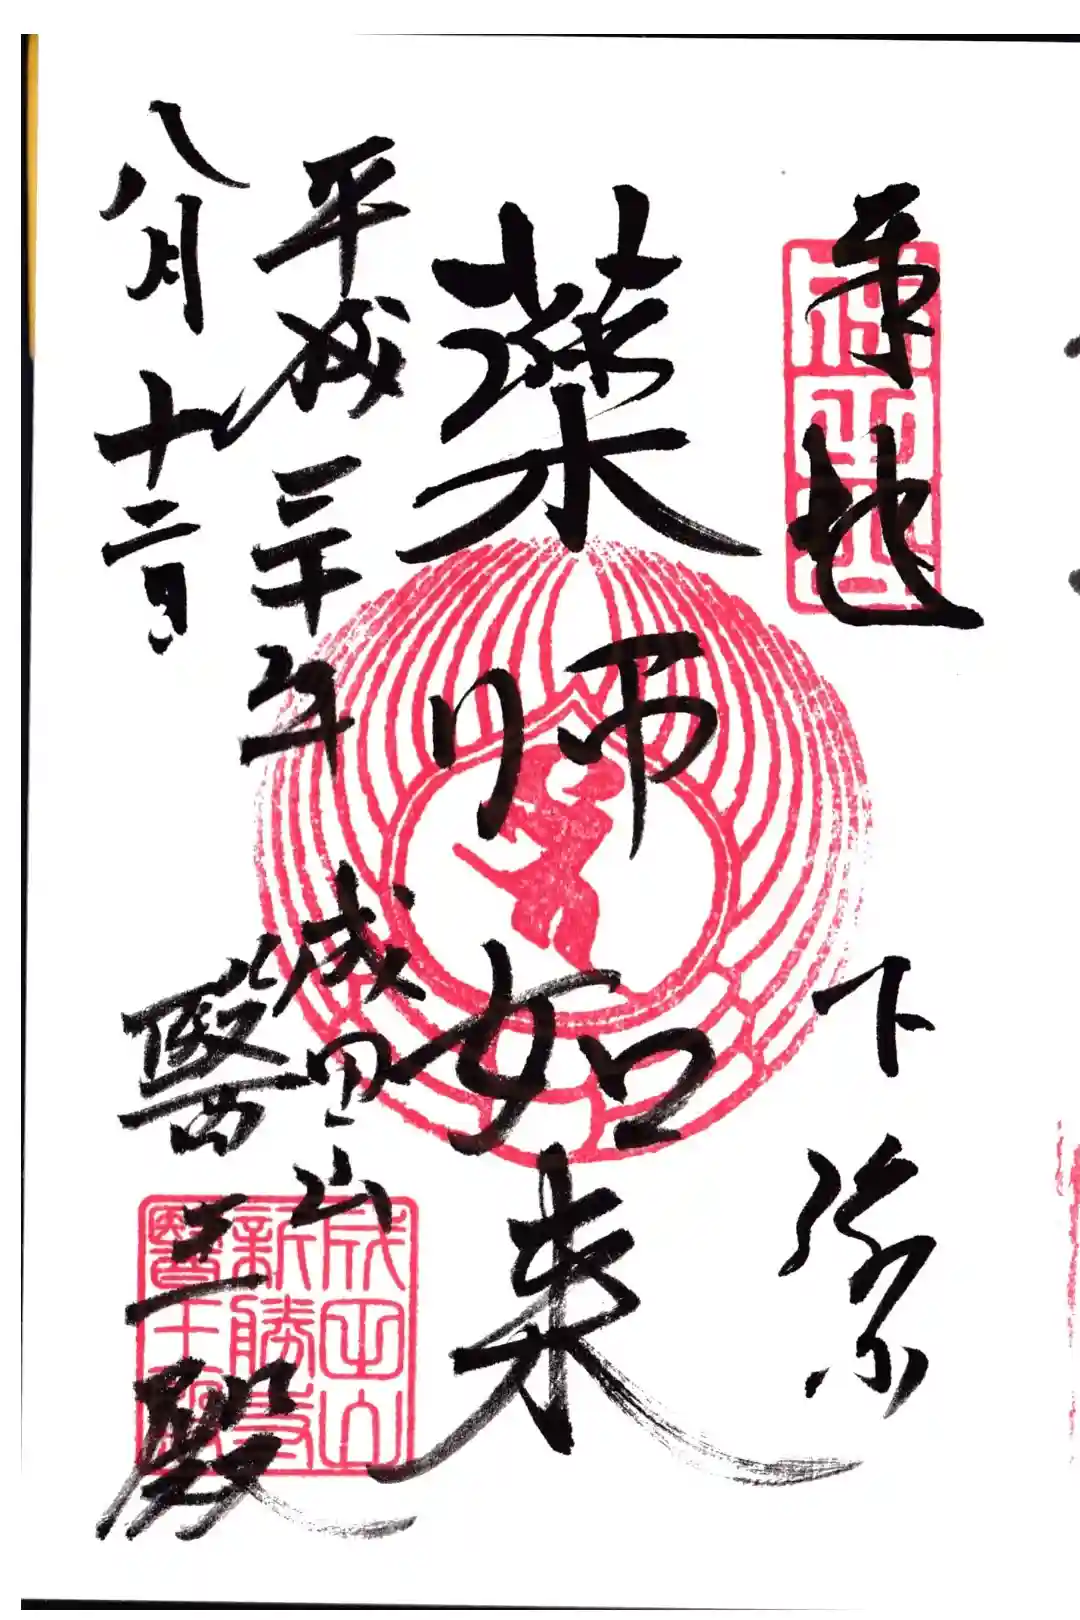 下総
薬師如来
平成三十年
八月十二日
成田山
醫王殿
成田山
新勝寺
醫王殿